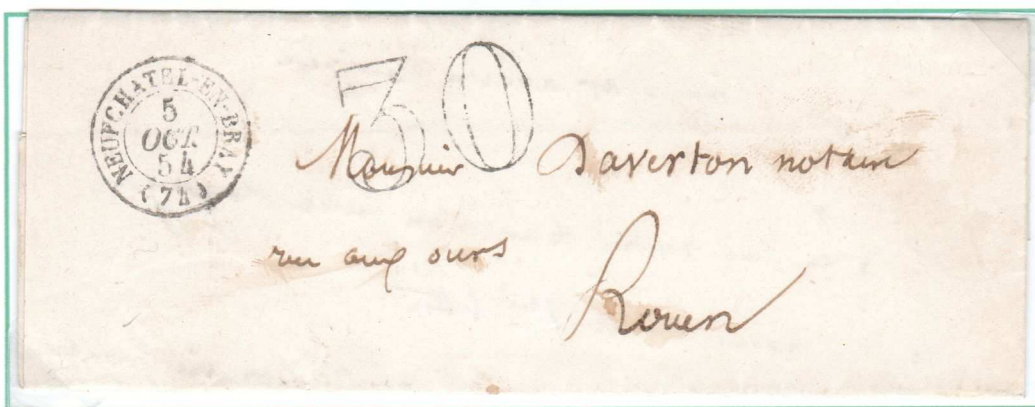 NEUFCHATEL-EN-BRAY
5
OCT.
54
(74)
30
Monsieur Daverton notaire
rue aux ours
Rouen